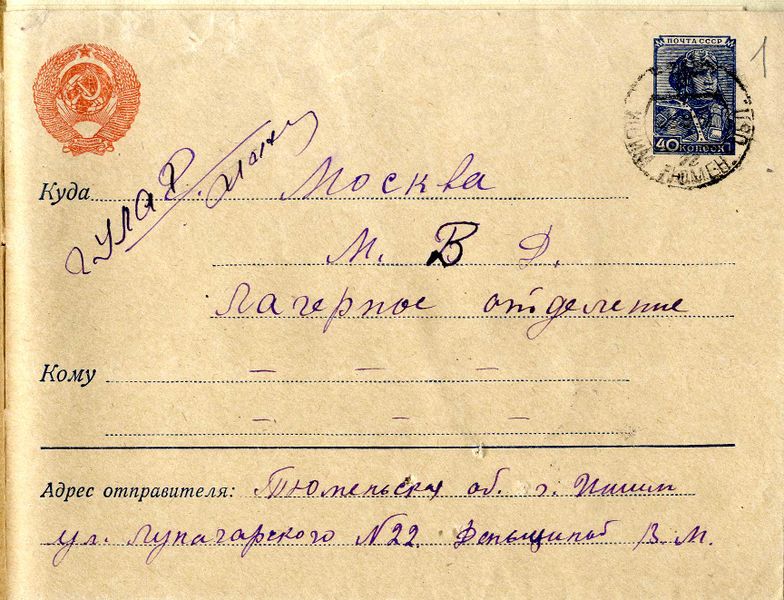 ПОЧТА СССР
1
40 КОПЕЕК
ИШИМ ТЮМЕН. ОБЛ.
ГУЛАГ
Куда г. Москва
М. В. Д.
Лагерное отделение
Кому — — —
— — —
Адрес отправителя: Тюменьская об. г. Ишим
ул. Луначарского №22 В. М.